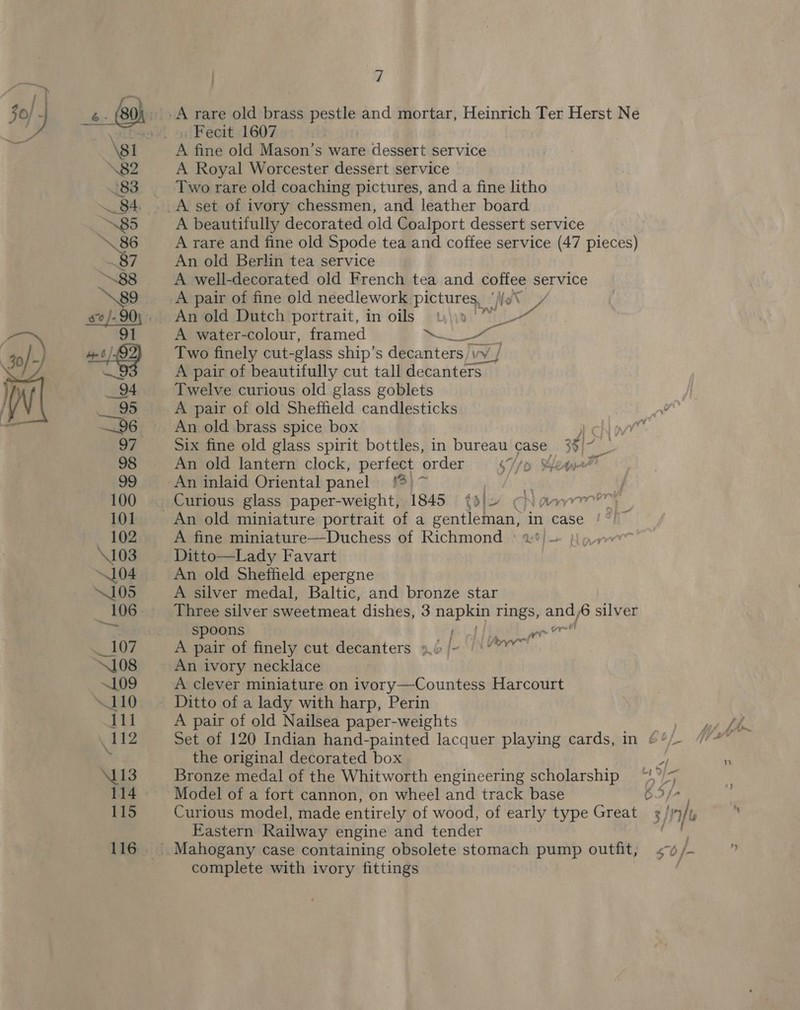 7
30/- 6 - (80) A rare old brass pestle and mortar, Heinrich Ter Herst Ne
Fecit 1607
81 A fine old Mason's ware dessert service
82 A Royal Worcester dessert service
83 Two rare old coaching pictures, and a fine litho
84 A set of ivory chessmen, and leather board
85 A beautifully decorated old Coalport dessert service
86 A rare and fine old Spode tea and coffee service (47 pieces)
87 An old Berlin tea service
88 A well-decorated old French tea and coffee service
89 A pair of fine old needlework pictures,
90 An old Dutch portrait, in oils
91 A water-colour, framed
30/- 92 Two finely cut-glass ship's decanters
93 A pair of beautifully cut tall decanters
94 Twelve curious old glass goblets
95 A pair of old Sheffield candlesticks
96 An old brass spice box
97 Six fine old glass spirit bottles, in bureau case
98 An old lantern clock, perfect order
99 An inlaid Oriental panel
100 Curious glass paper-weight, 1845
101 An old miniature portrait of a gentleman, in case
102 A fine miniature—Duchess of Richmond
103 Ditto—Lady Favart
104 An old Sheffield epergne
105 A silver medal, Baltic, and bronze star
106 Three silver sweetmeat dishes, 3 napkin rings, and 6 silver
spoons
107 A pair of finely cut decanters
108 An ivory necklace
109 A clever miniature on ivory—Countess Harcourt
110 Ditto of a lady with harp, Perin
111 A pair of old Nailsea paper-weights
112 Set of 120 Indian hand-painted lacquer playing cards, in
the original decorated box
113 Bronze medal of the Whitworth engineering scholarship
114 Model of a fort cannon, on wheel and track base
115 Curious model, made entirely of wood, of early type Great
Eastern Railway engine and tender
116 Mahogany case containing obsolete stomach pump outfit,
complete with ivory fittings